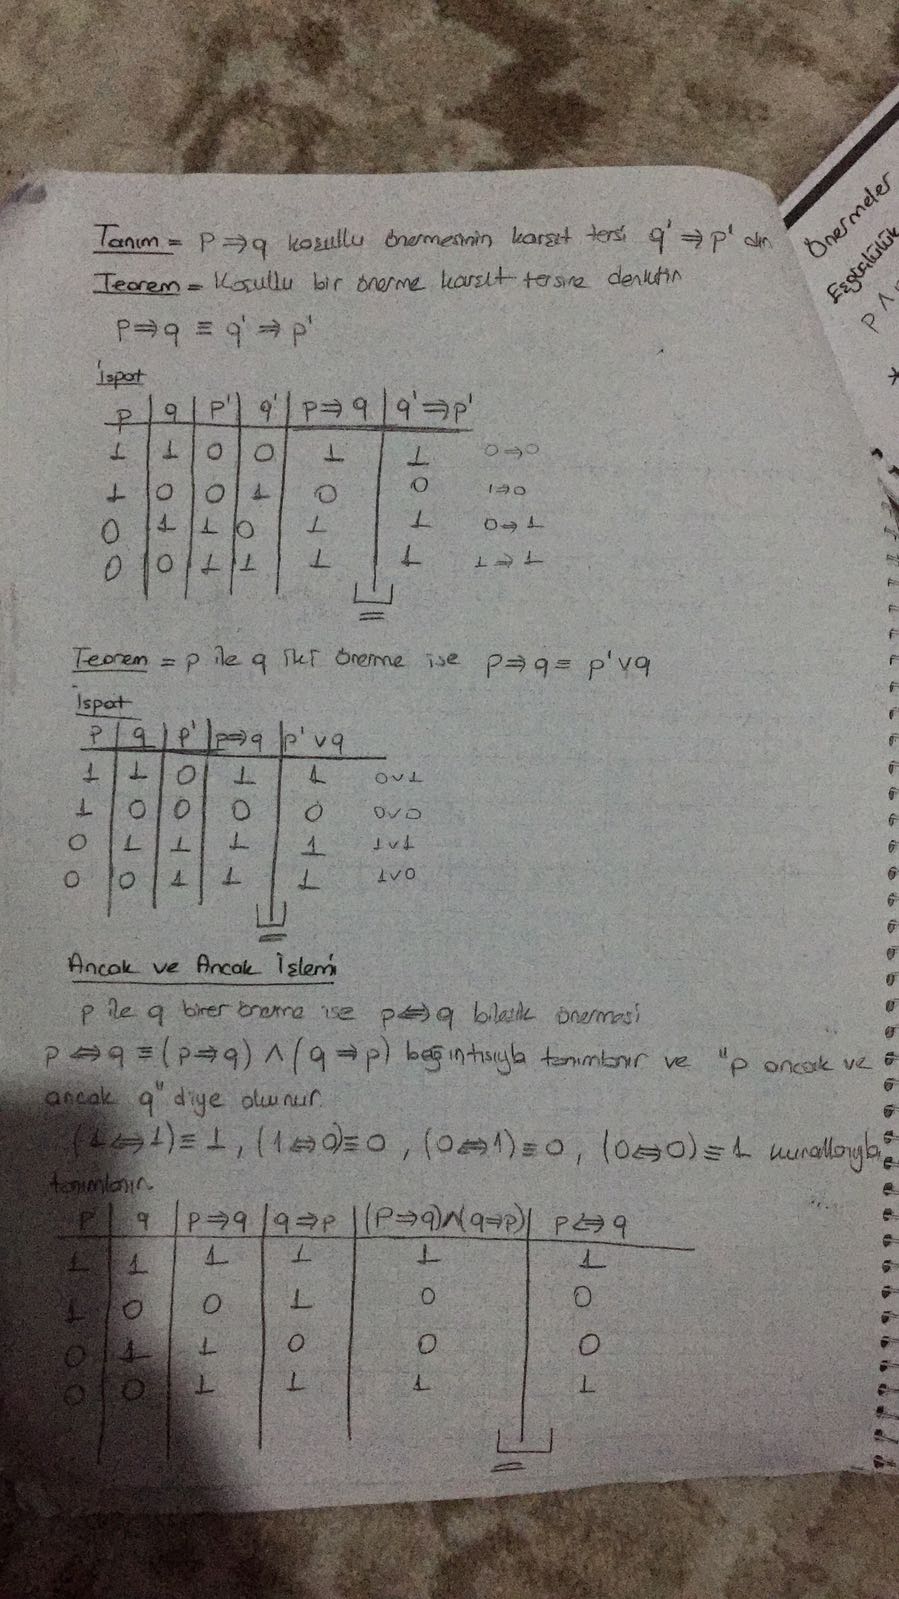 Tanım = p ⇒ q koşullu önermesinin karşıt tersi q' ⇒ p' dır
Teorem = Koşullu bir önerme karşıt tersine denktir
p ⇒ q ≡ q' ⇒ p'
İspat
p | q | p' | q' | p ⇒ q | q' ⇒ p'
1 1 0 0 1 1 0⇒0
1 0 0 1 0 0 1⇒0
0 1 1 0 1 1 0⇒1
0 0 1 1 1 1 1⇒1
=
Teorem = p ile q iki önerme ise p ⇒ q ≡ p' ∨ q
İspat
p | q | p' | p⇒q | p' ∨ q
1 1 0 1 1 0∨1
1 0 0 0 0 0∨0
0 1 1 1 1 1∨1
0 0 1 1 1 1∨0
=
Ancak ve Ancak İşlemi
p ile q birer önerme ise p⇔q bileşik önermesi
p ⇔ q ≡ (p⇒q) ∧ (q ⇒ p) bağıntısıyla tanımlanır ve "p ancak ve
ancak q" diye okunur.
(1⇔1)≡1, (1⇔0)≡0, (0⇔1)≡0, (0⇔0)≡1 kurallarıyla
tanımlanır.
p | q | p⇒q | q⇒p | (p⇒q)∧(q⇒p) | p⇔q
1 1 1 1 1 1
1 0 0 1 0 0
0 1 1 0 0 0
0 0 1 1 1 1
=
Önermeler
p ∧